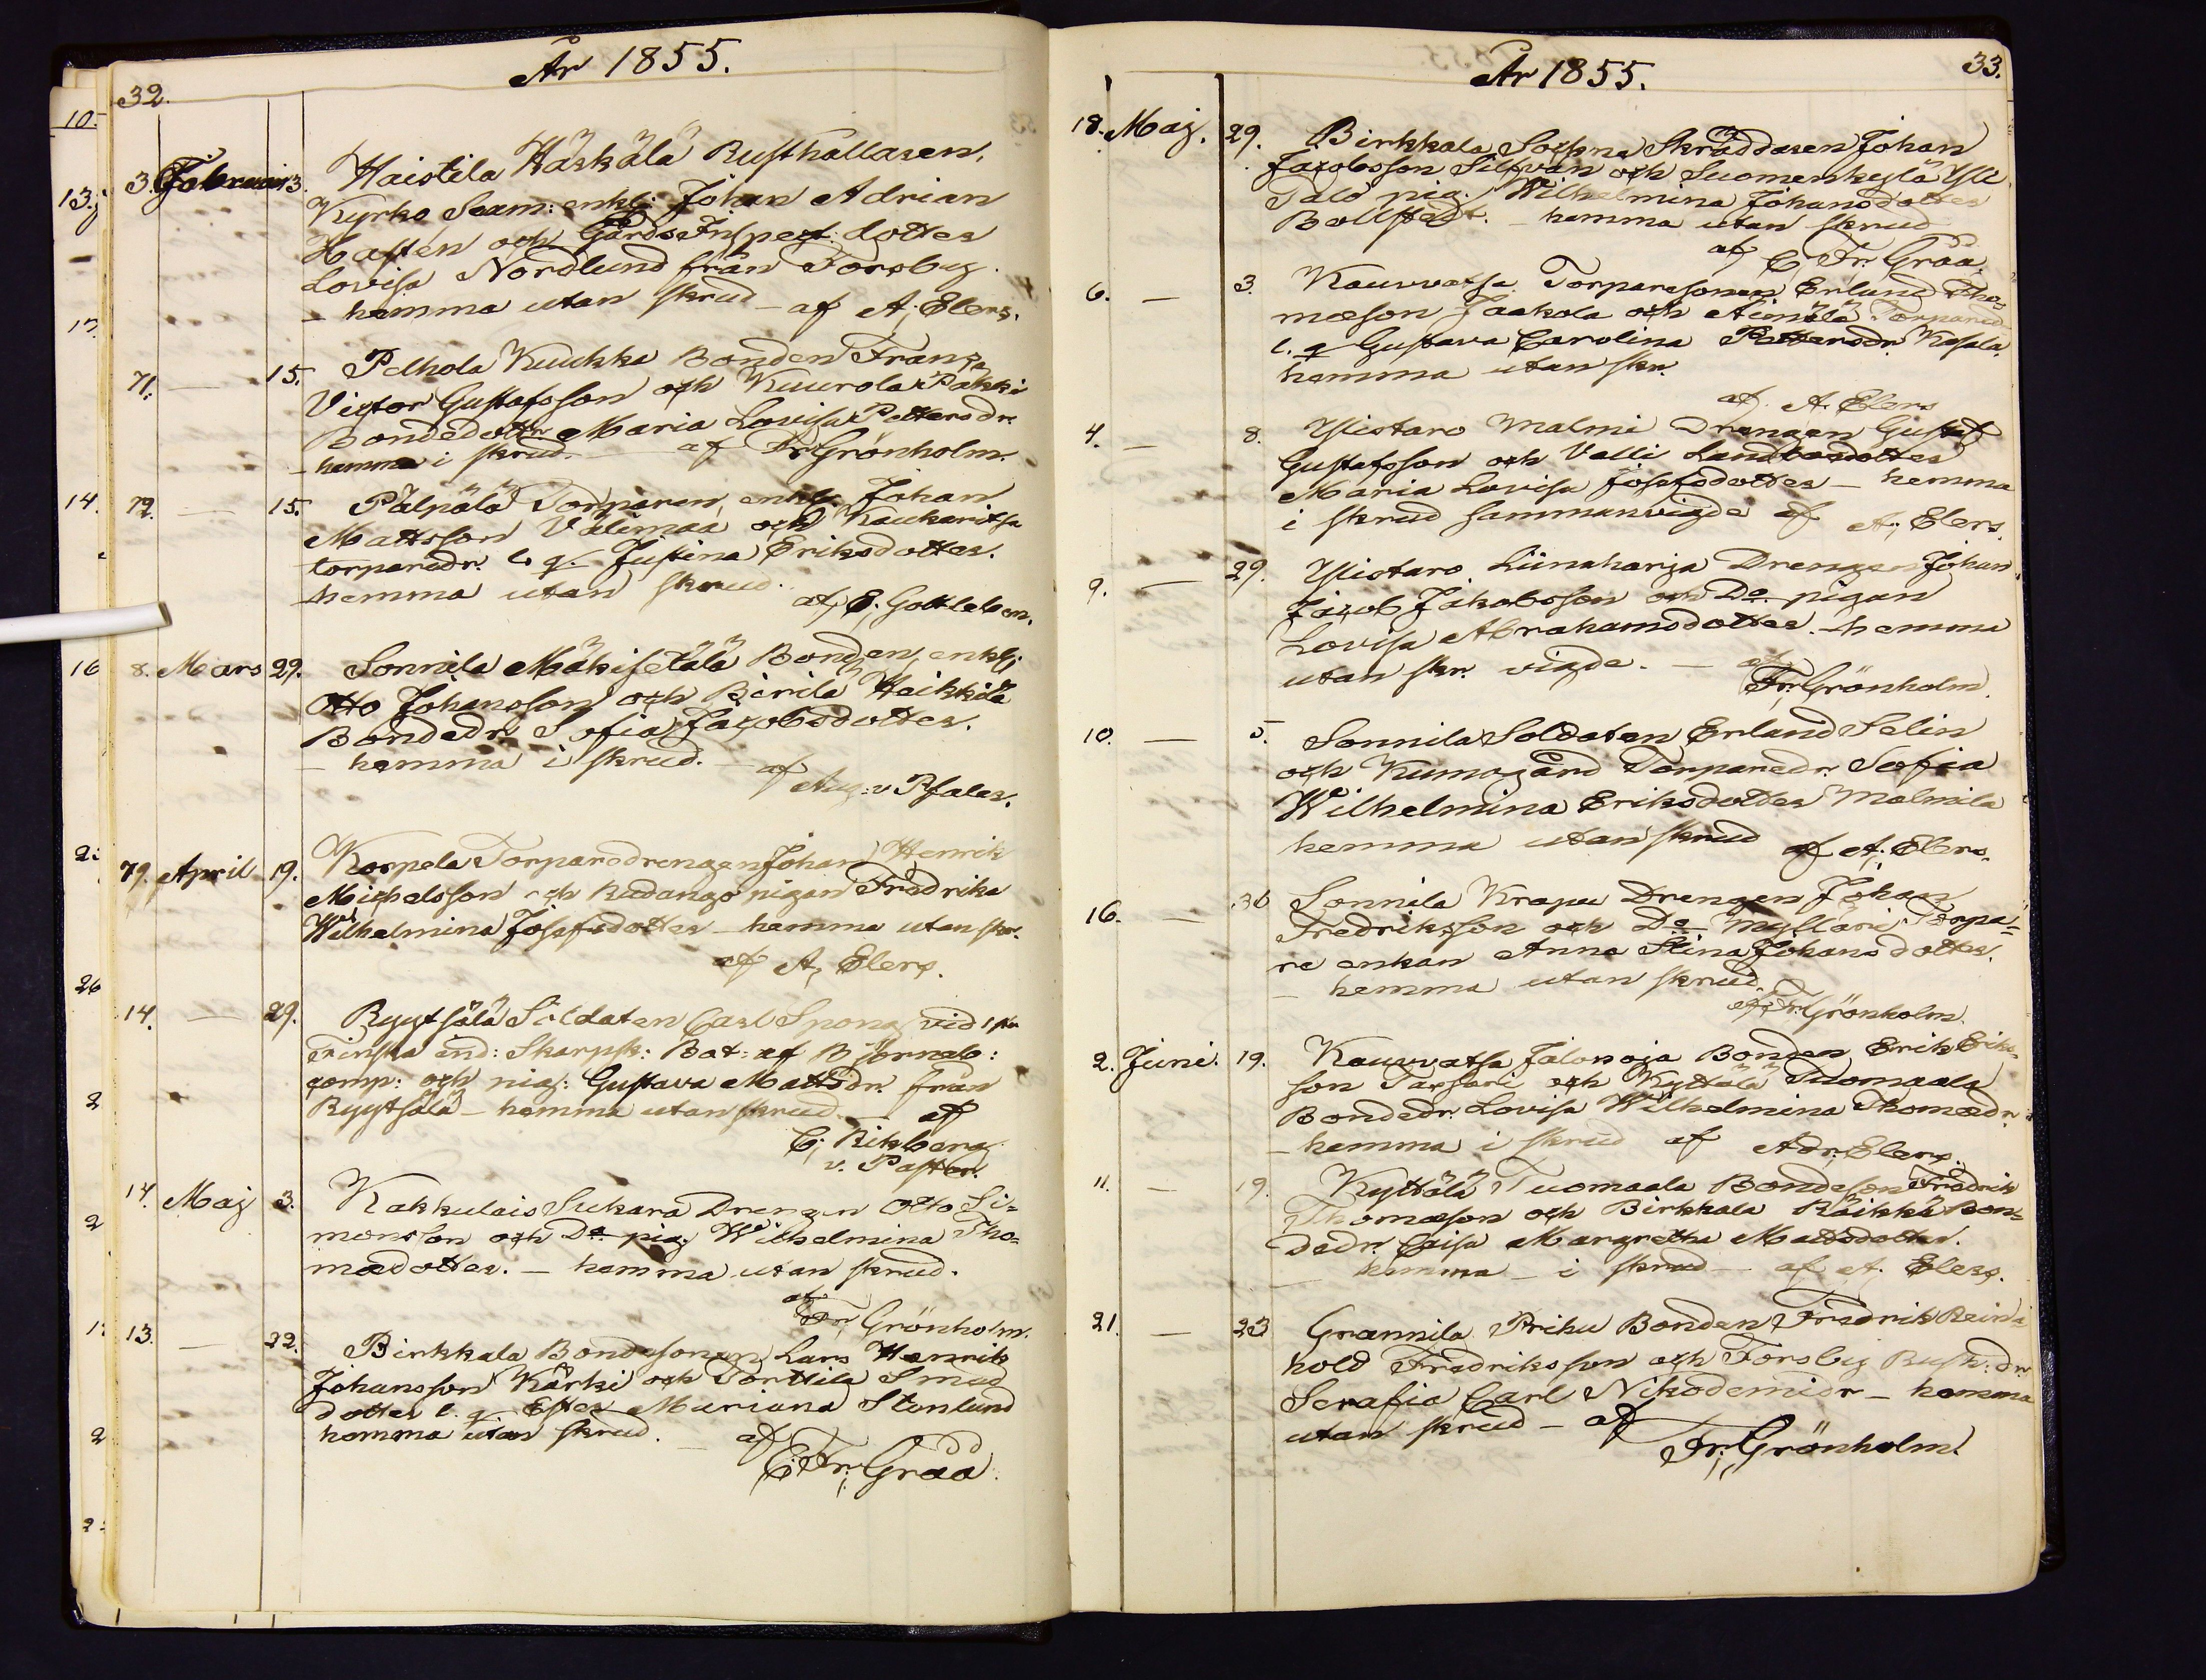 32.
År 1855.
3. Februari 3. Haistila Häskälä Rusthållaren,
Kyrko Seam: enkl: Johan Adrian
Hasten och Gårds Inspect. dotter
Lovisa Nordlund från Torsby.
– hemma utan skrud – af A. Elers.
71. — 15. Pelhola Kuukka Bonden Frans
Victor Gustafsson och Kuurola Pakki
Bondedottr. Maria Lovisa Pettersdr.
– hemma i skrud. – af Fr. Grönholm.
72. — 15. Pälpälä Torparen, enkl: Johan
Mattsson Välimaa och Kaukaritsa
torparedr. l. q. Justina Eriksdotter.
hemma utan skrud.
af C. Gottleben.
8. Mars 29. Sonnila Mäkisetälä Bonden, enkl:
Otto Johansson och Birilä Haikkila
Bondedr. Sofia Jacobsdotter.
– hemma i skrud. – af
Aug: v Pfaler.
79. April 19. Korpela Torparedrengen Johan Henrik
Michelsson och Rudango pigan Fredrika
Wilhelmina Josefsdotter – hemma utan skr.
af A. Elers.
14. — 29. Ryytsälä Soldaten Carl Spong vid 1sta
Finska ind: Skarpsk: Bat: af Björneb:
comp: och pig: Gustava Mattsdr. från
Ryytsälä – hemma utan skrud. – af
C. Rikberg
v. Pastor.
14. Maj 3. Kakkulais Sukara Drengen Otto Si=
monsson och Do pig: Wilhelmina Tho=
mædotter. – hemma utan skrud.
af
Fr. Grönholm.
13. — 22. Birkkala Bondesonen Lars Henrik
Johansson Kärki och Torttila Smed
dotter l. q. Ester Mariana Stenlund
hemma utan skrud. – af
C. Fr. Gråå.
År 1855.
33.
18. Maj. 29. Birkkala Sockne Skräddaren Johan
Jacobsson Silfvan och Suomenkylä Yli
Talo pig: Wilhelmina Johansdotter
Bollstedt. – hemma utan skrud
af C. Fr. Gråå.
6. — 3. Kauvvatsa Torparesonen Erland Tho=
mæson Jaakola och Aimälä Torpared.
l. q Gustava Carolina Pettersdr. Kasala.
hemma utan skr.
af A. Elers
4. — 8. Ylistaro Malmi Drengen Gustaf
Gustafsson och Valli Landbodotter
Maria Lovisa Josefsdotter – hemma
i skrud sammanvigde af A. Elers.
9. — 29. Ylistaro Liinaharja Drengen Johan
Jacob Jakobsson och Do pigan
Lovisa Abrahamsdotter. – hemma
utan skr. vigde. – af
Fr. Grönholm.
10. — 5. Sonnila Soldaten Erland Selin
och Kumogård Torparedr. Sofia
Wilhelmina Eriksdotter Malmila
hemma utan skrud af A. Elers.
16. — 30 Sonnila Krapu Drengen Johan
Fredriksson och Do Myllari Torpa=
re enkan Anna Stina Johansdotter.
– hemma utan skrud.
af Fr. Grönholm.
2. Juni. 19. Kauvvatsa Jalonoja Bonden Erik Eriks=
son Taxsari och Kyttälä Tuomaala
Bondedr. Lovisa Wilhelmina Thomædr.
– hemma i skrud af Adr. Elers.
11. — 19. Kyttälä Tuomaala Bondeson Fredrik
Thomæson och Birkkala Räikkä Bon=
dedr. Caisa Margretha Mattsdotter.
– hemma – i skrud – af A. Elers.
21. — 23 Grannila Priku Bonden Fredrik Rein=
hold Fredriksson och Torsby Rusth: dr.
Serafia Carl Nikodemidr – hemma
utan skrud – af
Fr. Grönholm.